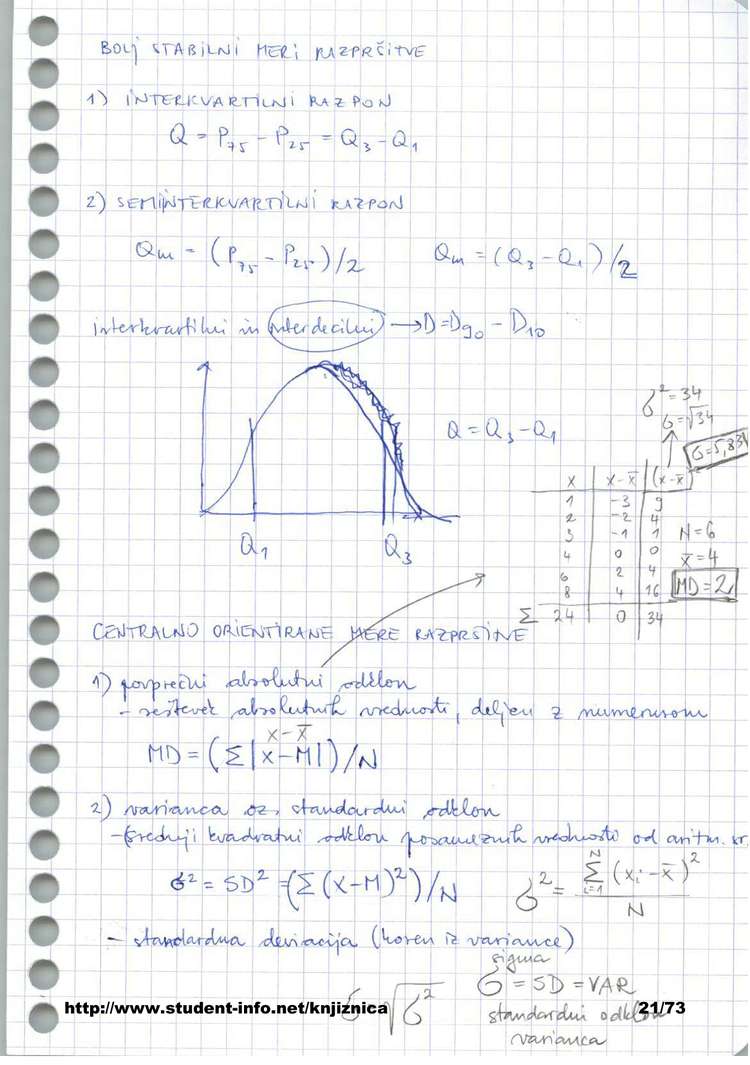 BOLJ STABILNI MERI RAZPRŠITVE
1) INTERKVARTILNI RAZPON
Q = P₇₅ - P₂₅ = Q₃ - Q₁
2) SEMIINTERKVARTILNI RAZPON
Qm = (P₇₅ - P₂₅)/2
Qm = (Q₃ - Q₁)/2
interkvartilni in interdecilni → D = D₉₀ - D₁₀
Q = Q₃ - Q₁
Q₁ Q₃
σ² = 34
σ = √34
σ = 5,831
x | x - x̄ | (x - x̄)²
1 | -3 | 9
2 | -2 | 4
3 | -1 | 1
4 | 0 | 0
6 | 2 | 4
8 | 4 | 16
Σ 24 | 0 | 34
N = 6
x̄ = 4
MD = 2
CENTRALNO ORIENTIRANE MERE RAZPRŠITVE
1) povprečni absolutni odklon
- seštevek absolutnih vrednosti, deljen z numerusom
x - x̄
MD = (Σ|X - M|)/N
2) varianca oz. standardni odklon
- (srednji kvadratni odklon posameznih vrednosti od aritm. sr.
σ² = SD² = (Σ(X - M)²)/N
σ² = Σᵢ₌₁ᴺ (xᵢ - x̄)² / N
- standardna deviacija (koren iz variance)
sigma
σ = SD = VAR
σ √σ²
standardni odklon
varianca
http://www.student-info.net/knjiznica
21/73